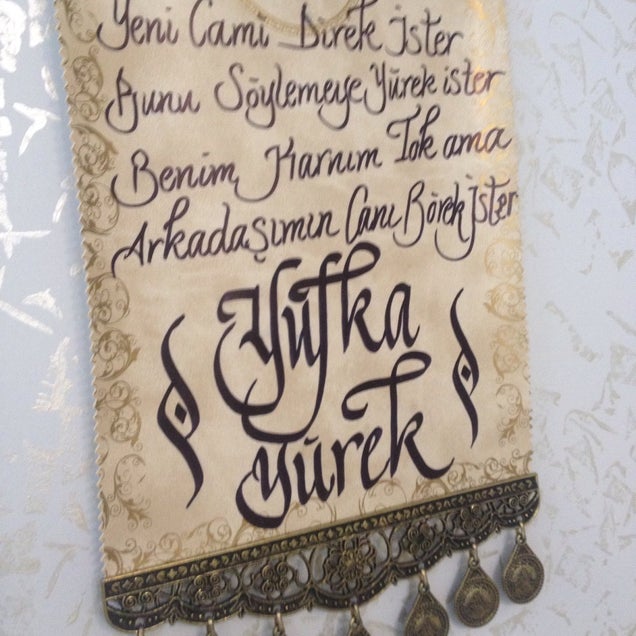 Yeni Cami Direk İster
Bunu Söylemeye Yürek ister
Benim Karnım Tok ama
Arkadaşımın Canı Börek İster
Yufka
Yürek